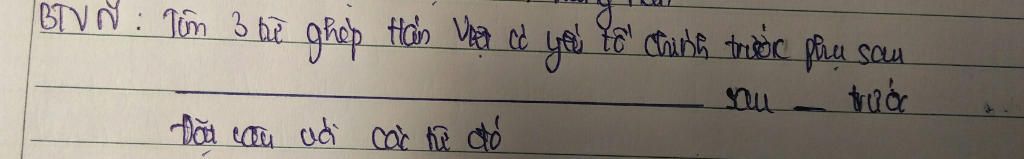 BTVN : Tìm 3 từ ghép Hán Việt có yếu tố chính trước phụ sau
sau — trước
Đặt câu với các từ đó